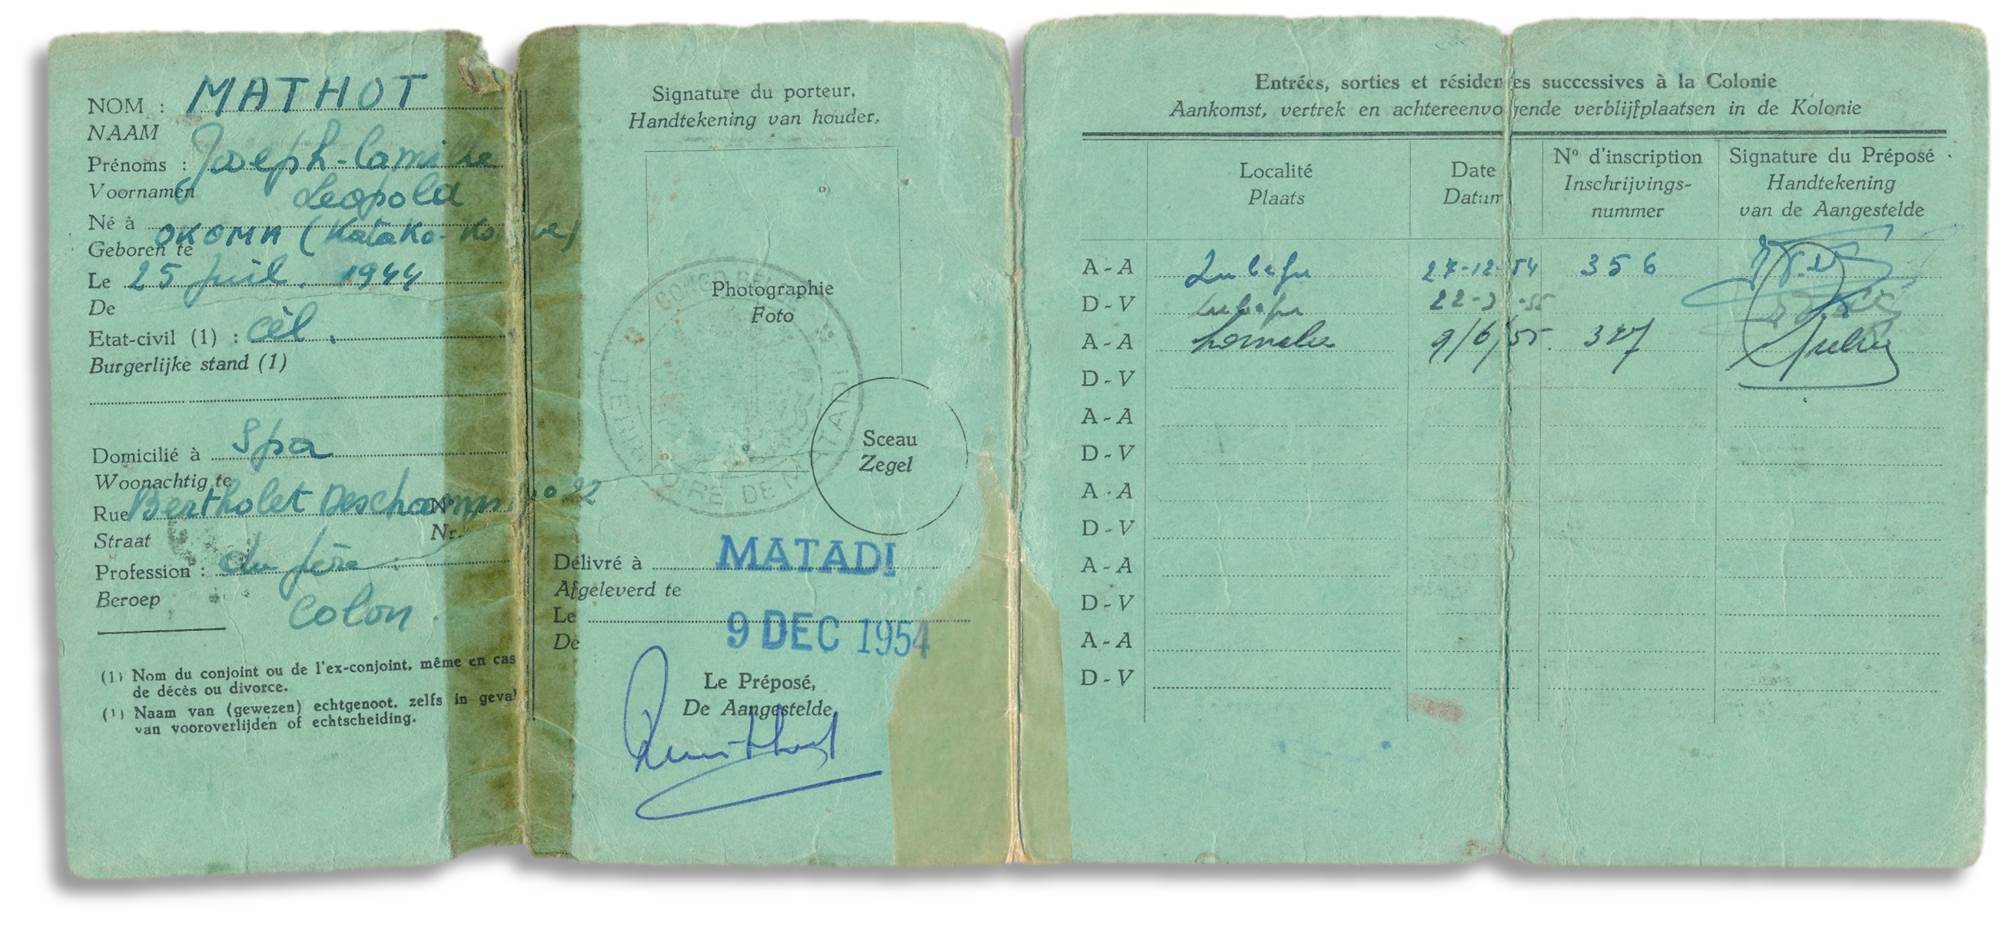 NOM : MATHOT
NAAM
Prénoms : Joseph-Camille
Voornamen Leopold
Né à OKOMA (Katako-Ko be)
Geboren te
Le 25 Juil. 1944
De
Etat-civil (1) : cèl.
Burgerlijke stand (1)
Domicilié à Spa
Woonachtig te
Rue Bertholet Deschamps No 92
Straat Nr.
Profession : du père
Beroep colon.
(1) Nom du conjoint ou de l'ex-conjoint, même en cas
de décès ou divorce.
(1) Naam van (gewezen) echtgenoot, zelfs in geval
van vooroverlijden of echtscheiding.
Signature du porteur.
Handtekening van houder.
Photographie
Foto
CONGO BE
TERRITOIRE DE MATADI
Sceau
Zegel
Délivré à MATADI
Afgeleverd te
Le 9 DEC 1954
De
Le Préposé,
De Aangestelde,
Entrées, sorties et résidences successives à la Colonie
Aankomst, vertrek en achtereenvolgende verblijfplaatsen in de Kolonie
Localité Date N° d'inscription Signature du Préposé
Plaats Datum Inschrijvings- Handtekening
nummer van de Aangestelde
A - A Lubefu 27-12-54 356
D - V Lubefu 22-3-55
A - A Lomela 9/6/55 327
D - V
A - A
D - V
A - A
D - V
A - A
D - V
A - A
D - V